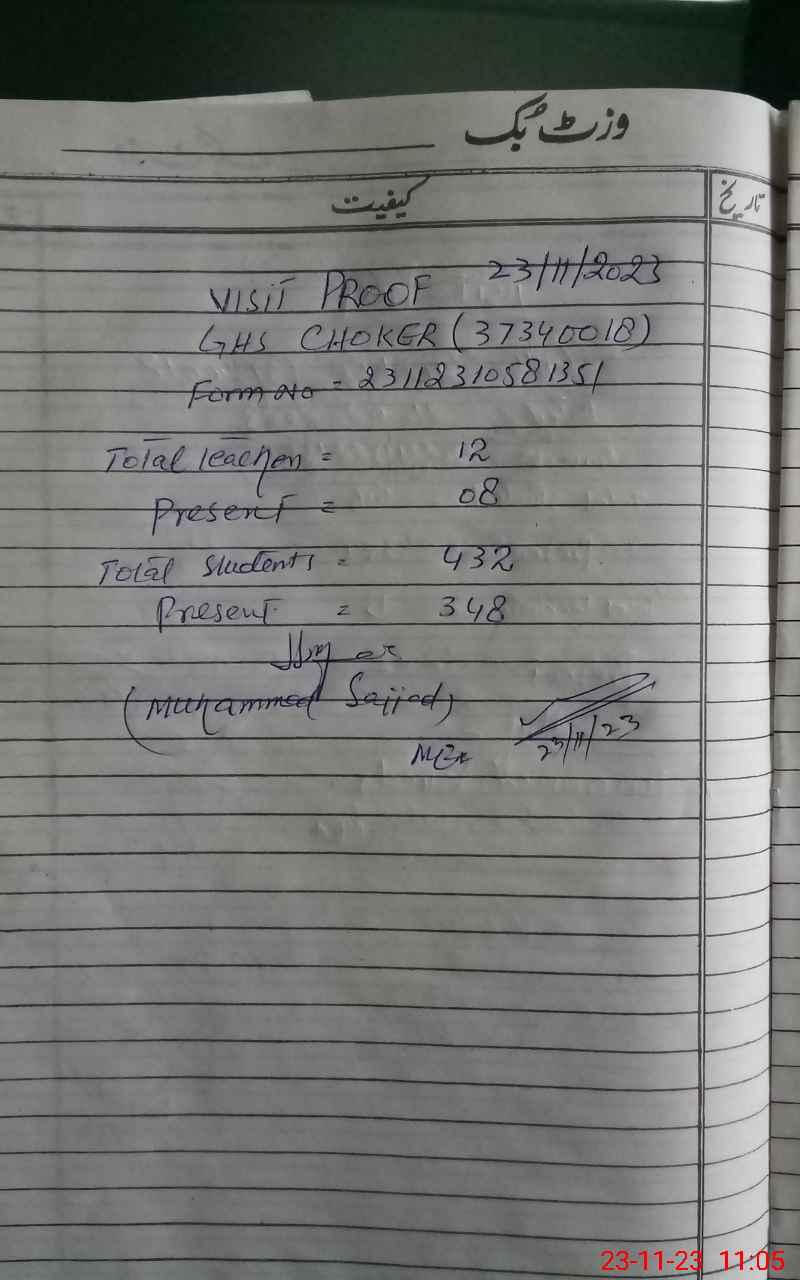 وزٹ بُک
کیفیت تاریخ
VISIT PROOF 23/11/2023
GHS CHOKER (37340018)
Form No = 23112310581351
Total Teacher = 12
Present = 08
Total Students = 432
Present = 348
(Muhammad Sajjad)
MEA 23/11/23
23-11-23 11:05